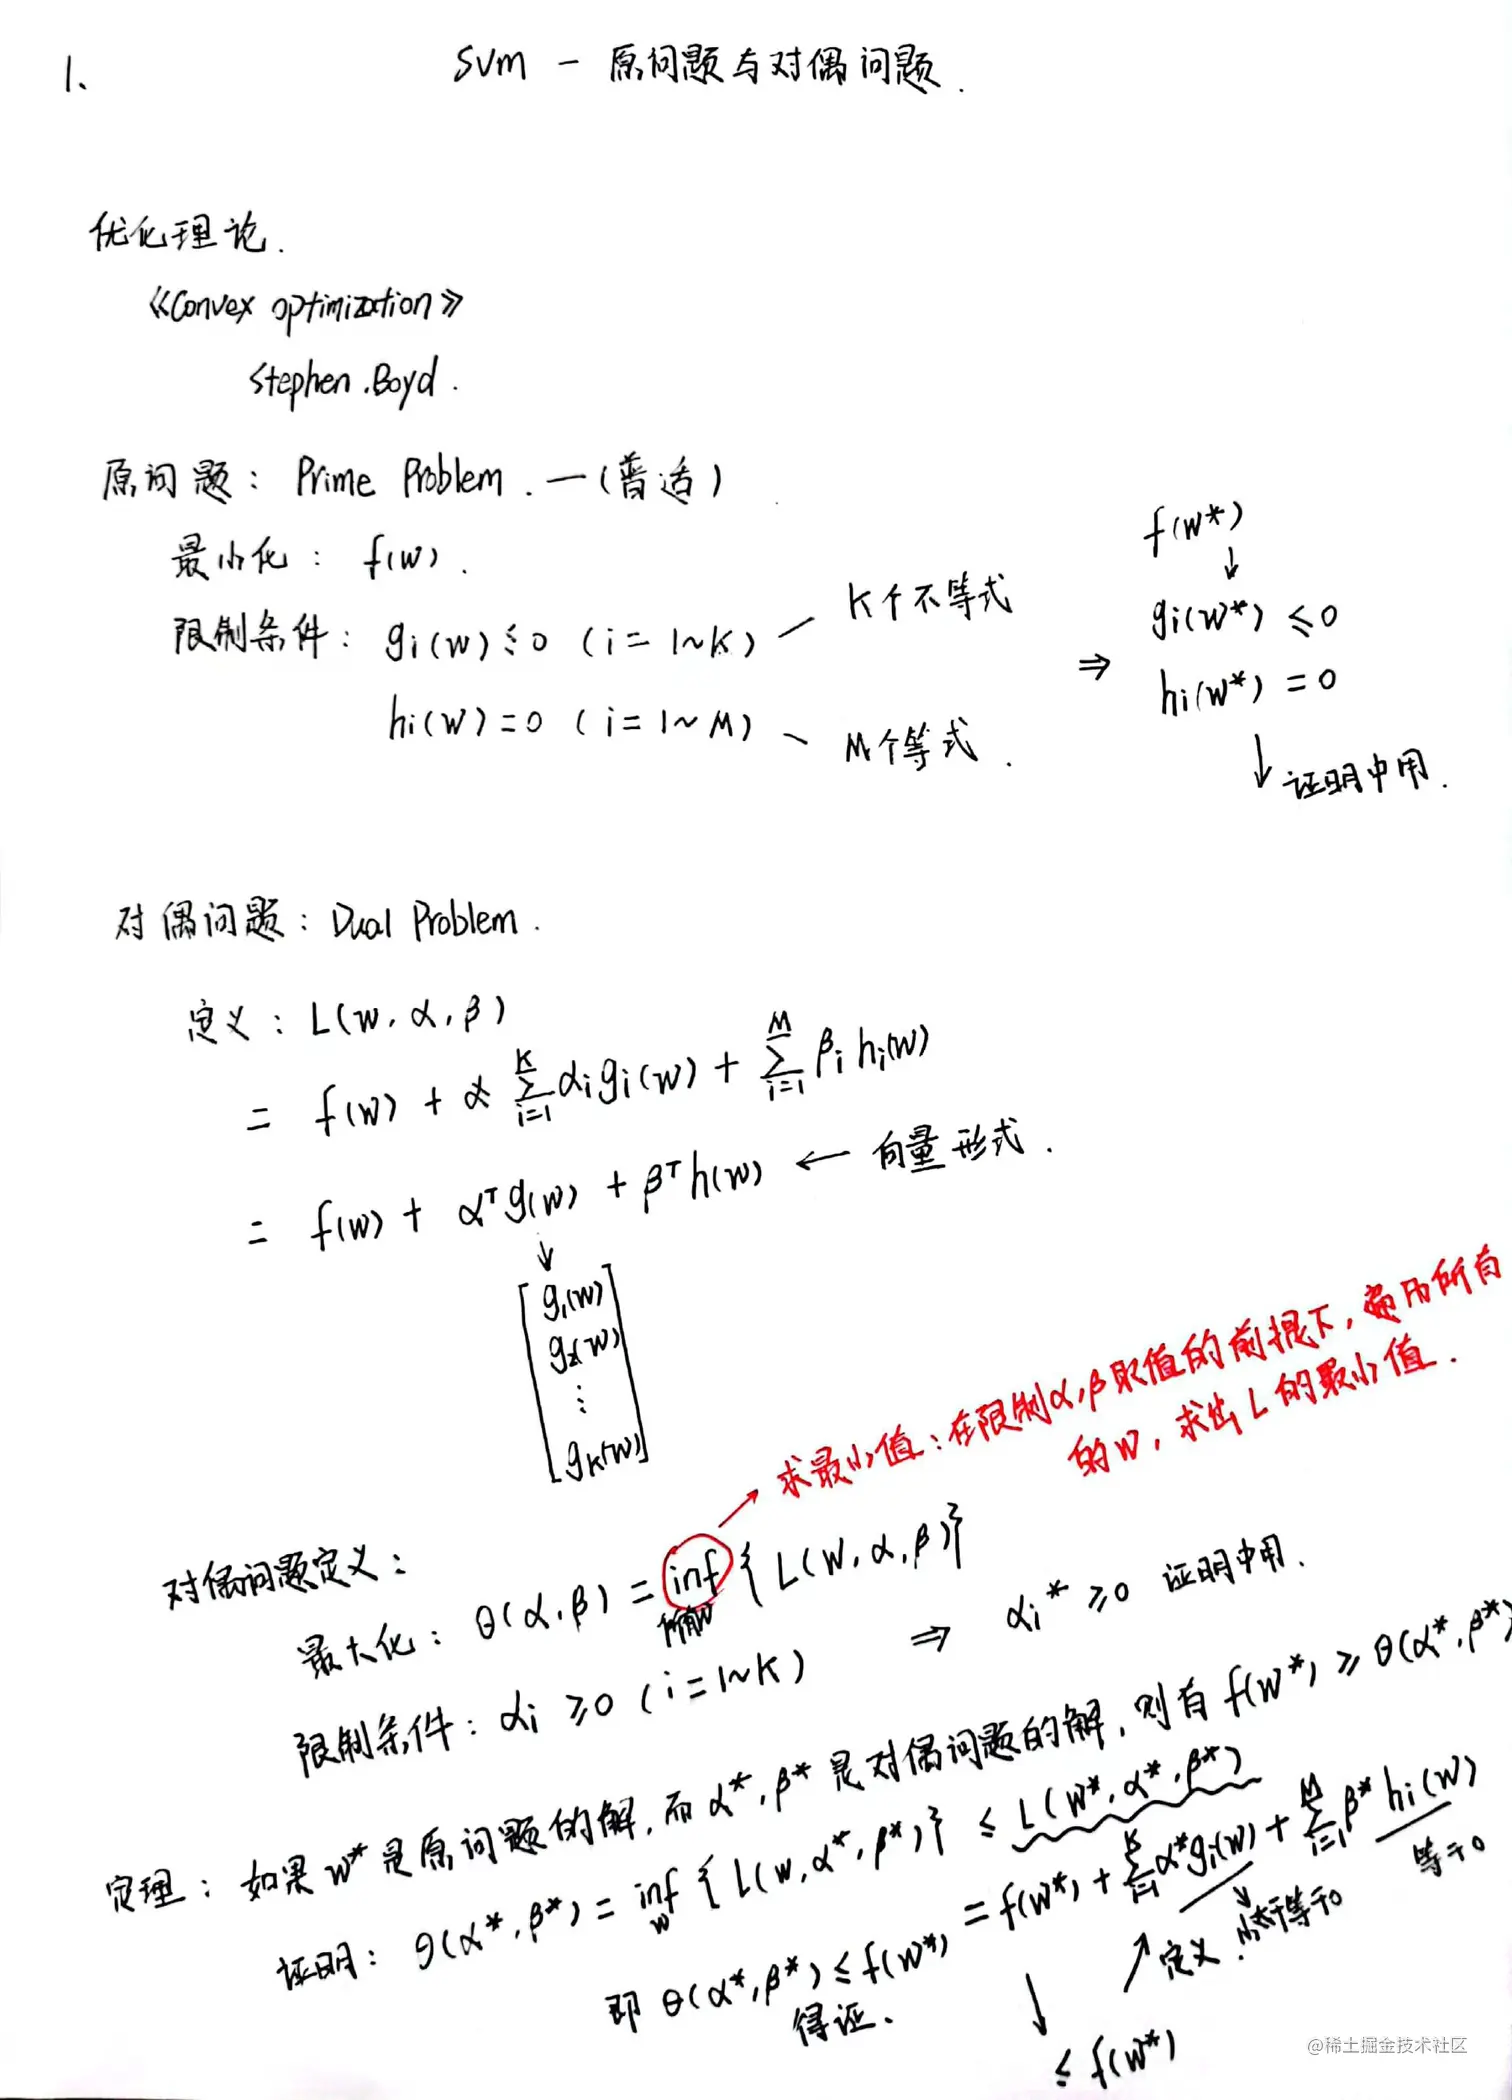 1. SVM — 原问题与对偶问题.
优化理论.
《Convex optimization》
Stephen.Boyd.
原问题: Prime Problem. —(普适)
最小化: f(w).
限制条件: gi(w)≤0 (i=1~K) — K个不等式
hi(w)=0 (i=1~M) — M个等式.
⇒
f(w*)
↓
gi(w*) ≤0
hi(w*) =0
↓ 证明中用.
对偶问题: Dual Problem.
定义: L(w,α,β)
= f(w) + α ∑_{i=1}^{K} αi gi(w) + ∑_{i=1}^{M} βi hi(w)
= f(w) + α^T g(w) + β^T h(w) ← 向量形式.
↓
[g1(w)
g2(w)
⋮
gK(w)]
→ 求最小值: 在限制α,β取值的前提下, 遍历所有
的W, 求出L的最小值.
对偶问题定义:
最大化: θ(α,β) = inf {L(W,α,β)}
所有W
限制条件: αi ≥0 (i=1~K)
⇒ αi* ≥0 证明中用.
定理: 如果w*是原问题的解,而α*,β*是对偶问题的解, 则有 f(w*) ≥ θ(α*,β*)
证明: θ(α*,β*) = inf_w {L(w,α*,β*)} ≤ L(w*,α*,β*)
= f(w*) + ∑_{i=1}^{K} α* gi(w) + ∑_{i=1}^{M} β* hi(w)
小于等于0
等于0
↗ 定义.
↓
≤ f(w*)
即 θ(α*,β*) ≤ f(w*)
得证.
@稀土掘金技术社区